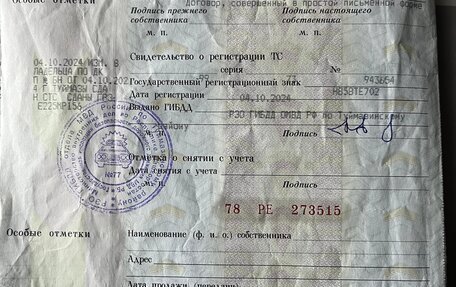 Особые отметки
договор, совершенный в простой письменной форме
Подпись прежнего собственника
Подпись настоящего собственника
М. П.
М. П.
04.10.2024/ИЗМ. В
ЛАДЕЛЬЦА ПО ДК
П Ж БН ОТ 04.10.202
4 Г ТУЙМАЗЫ СДА
Н СТС СДАНЫ ГРЗ:
Е225МР156
Свидетельство о регистрации ТС
серия 99 № 943664
Государственный регистрационный знак Н858ТЕ702
Дата регистрации 04.10.2024
Выдано ГИБДД РЭО ГИБДД ОМВД РФ по Туймазинскому
району
Подпись
№77
Отметка о снятии с учета
Дата снятия с учета
М. П.
Подпись
78 РЕ 273515
Особые отметки
Наименование (ф. и. о.) собственника
Адрес
Дата продажи (передачи)